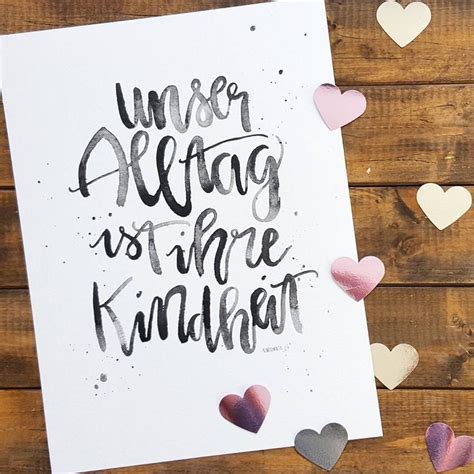 unser
Alltag
ist ihre
Kindheit